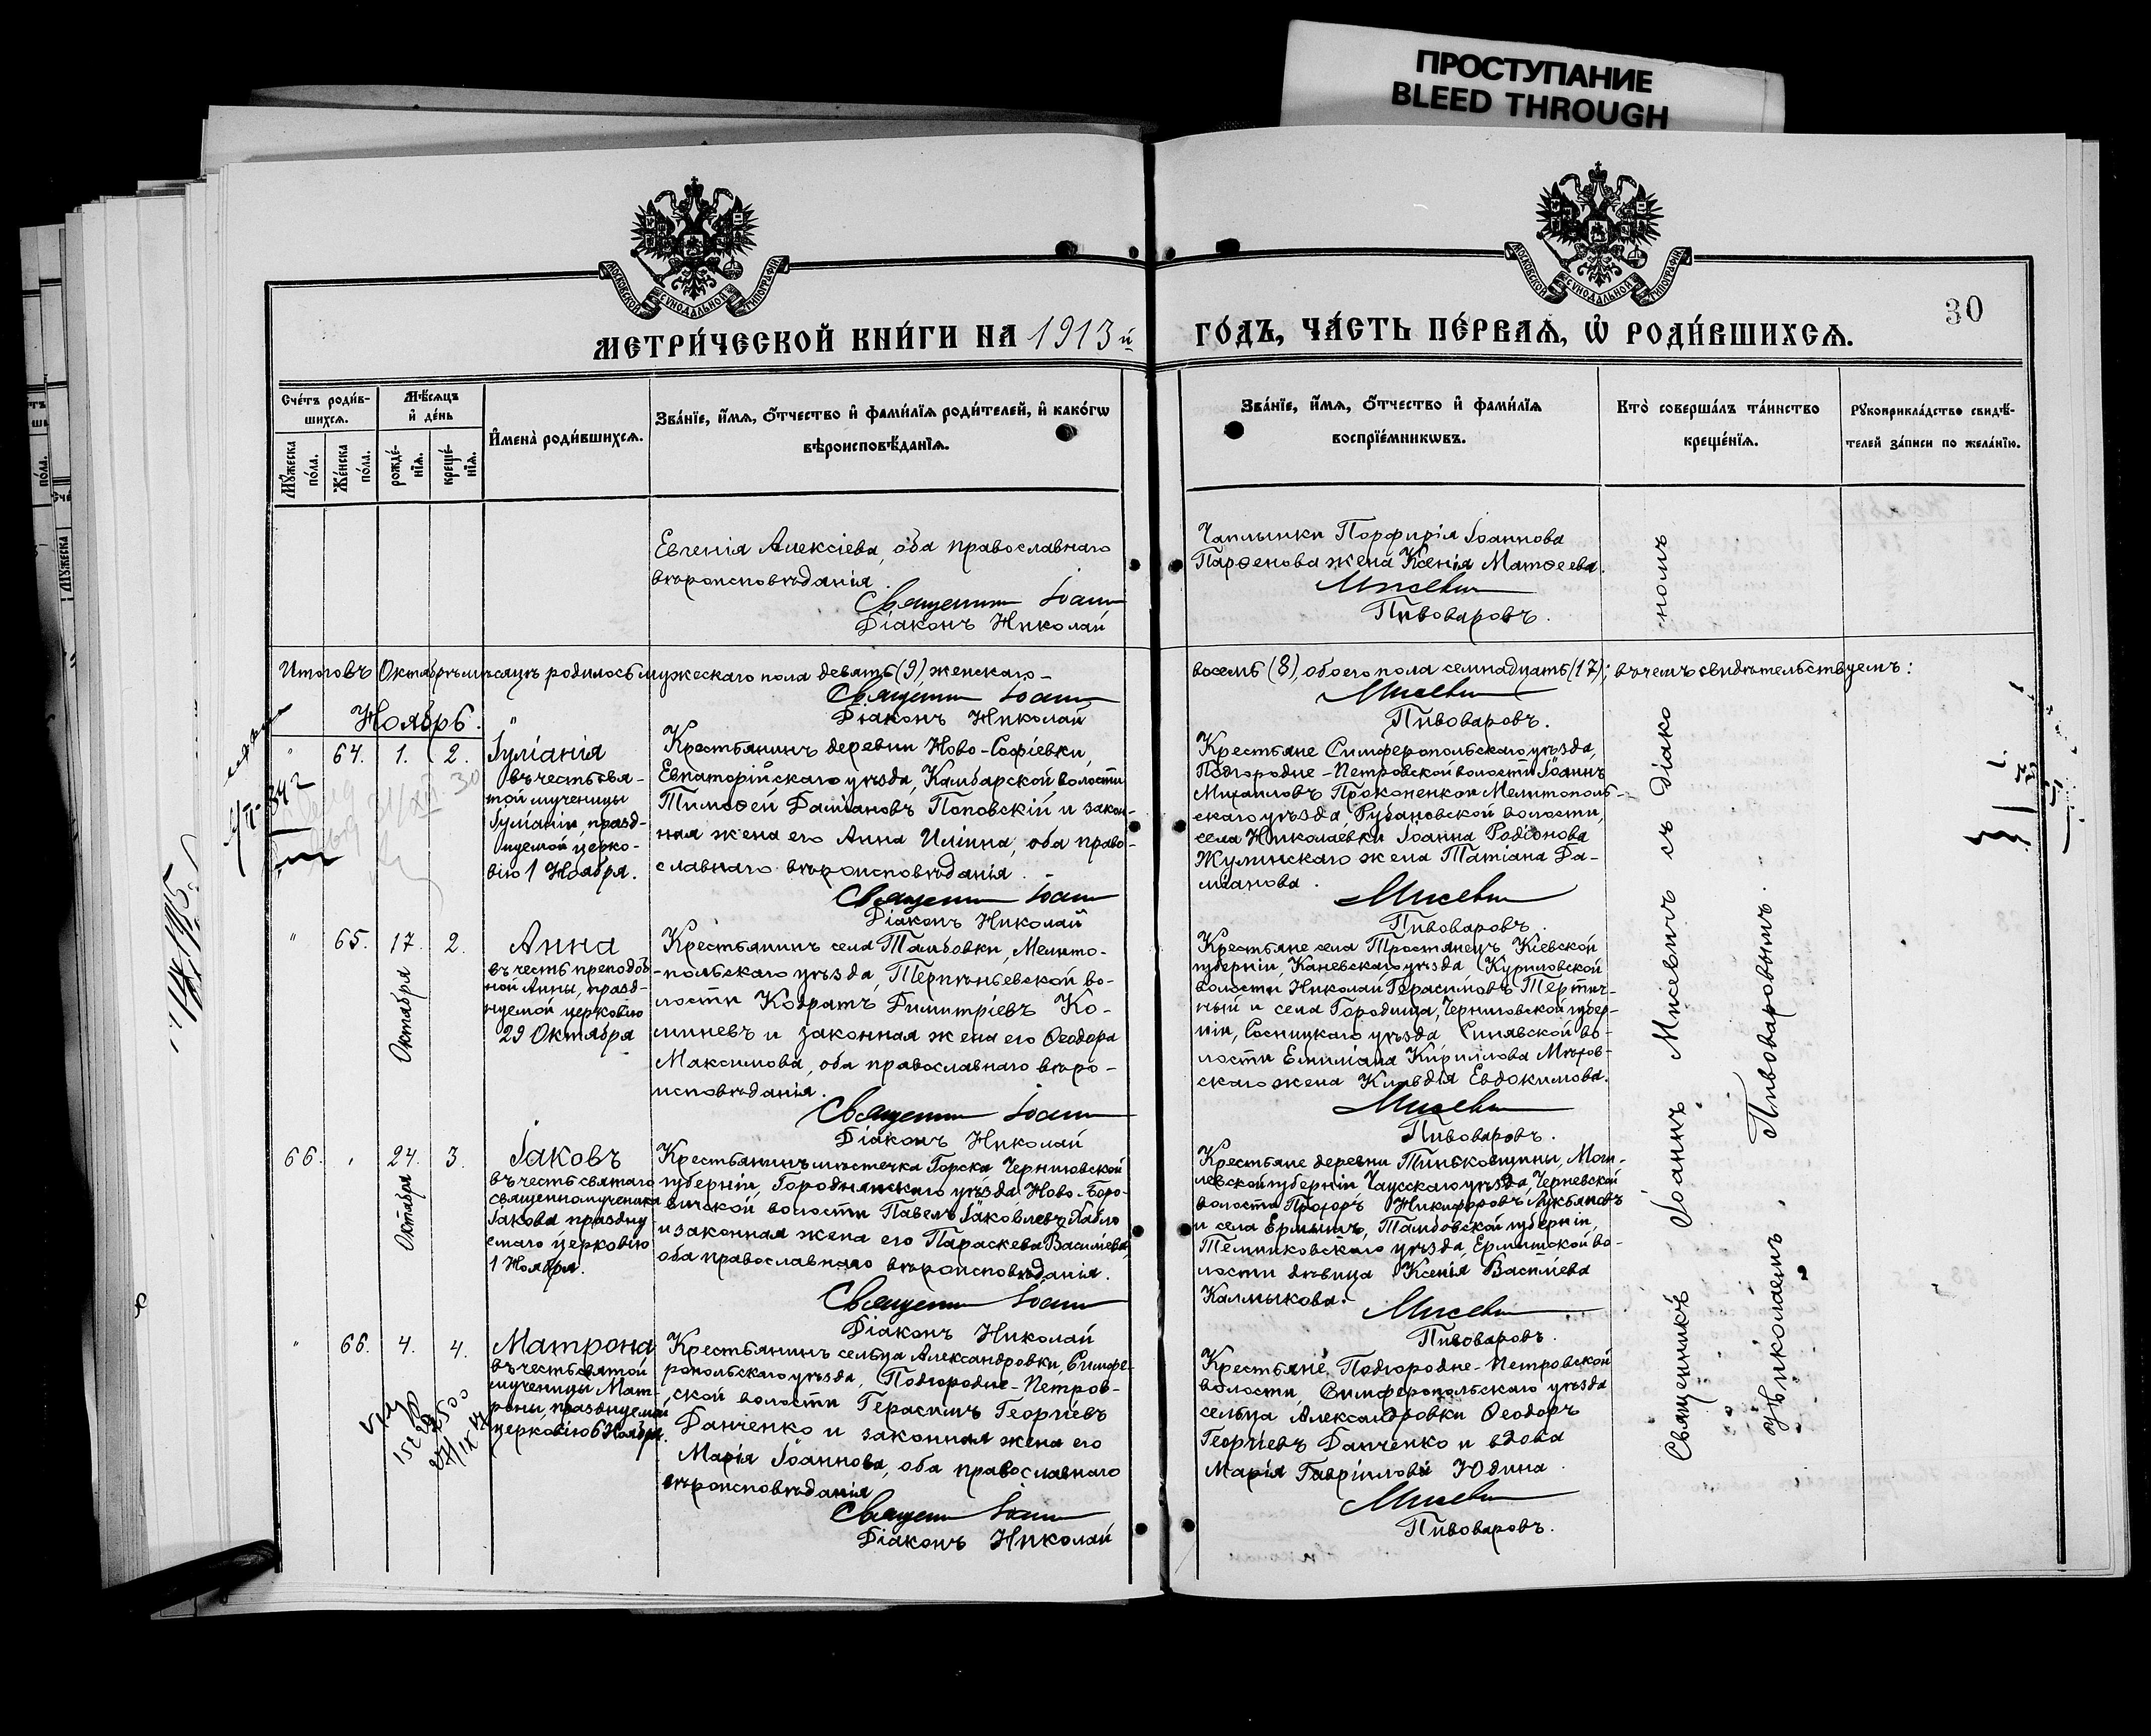 ПРОСТУПАНИЕ
BLEED THROUGH
МОСКОВСКОЙ СѴНОДАЛЬНОЙ ТИПОГРАФІИ
МОСКОВСКОЙ СѴНОДАЛЬНОЙ ТИПОГРАФІИ
30
МЕТРИ́ЧЕСКОЙ КНИ́ГИ НА 1913 й
ГО́ДЪ, ЧА́СТЬ ПЕ́РВАѦ, Ѡ҆ РОДИ́ВШИХСѦ.
Сче́тъ роди́в-
шихсѧ.
Мꙋ́жеска по́ла.
Же́нска по́ла.
Мѣ́сѧцъ
и҆ де́нь
рожде́-
нїѧ.
креще́-
нїѧ.
И҆мена̀ роди́вшихсѧ.
Зва́нїе, и҆́мѧ, ѻ҆́тчество и҆ фами́лїѧ роди́телей, и҆ како́гѡ
вѣроисповѣ́данїѧ.
Зва́нїе, и҆́мѧ, ѻ҆́тчество и҆ фами́лїѧ
воспрїе́мникѡвъ.
Кто̀ соверша́лъ та́инство
креще́нїѧ.
Рꙋкоприкла́дство свидѣ́-
телей за́писи по жела́нїю.
Евгенія Алексіева, оба православнаго
вѣроисповѣданія.
Священникъ Іоаннъ
Діаконъ Николай
Чаплынки Порфирія Іоаннова
Парѳенова жена Ксенія Матѳеева.
Мисевичъ
Пивоваровъ.
Итого въ Октябрѣ мѣсяцѣ родилось мужескаго пола девять (9), женскаго -
восемь (8), обоего пола семнадцать (17); въ чемъ свидѣтельствуемъ:
Священникъ Іоаннъ
Мисевичъ
Діаконъ Николай
Пивоваровъ.
Ноябрь.
" 64. 1. 2. Іуліанія
въ честь свя-
той мученицы
Іуліаніи, празд-
нуемой церко-
вію 1 Ноября.
Крестьянинъ деревни Ново-Софіевки,
Евпаторійскаго уѣзда, Камбарской волости
Тимоѳей Даміановъ Поповскій и закон-
ная жена его Анна Иліина, оба право-
славнаго вѣроисповѣданія.
Священникъ Іоаннъ
Діаконъ Николай
Крестьяне Симферопольскаго уѣзда,
Подгородне-Петровской волости Іоаннъ
Михаиловъ Прокопенко и Мелитополь-
скаго уѣзда, Рубановской волости,
села Николаевки Іоанна Родіонова
Жулинскаго жена Татіана Да-
міанова.
Мисевичъ
Пивоваровъ.
" 65. 17. 2. Анна
Октября
въ честь преподоб-
ной Анны, празд-
нуемой церковію
29 Октября
Крестьянинъ села Тамбовки, Мелито-
польскаго уѣзда, Терпѣньевской во-
лости Кодратъ Димитріевъ Ко-
миневъ и законная жена его Ѳеодора
Максимова, оба православнаго вѣро-
исповѣданія.
Священникъ Іоаннъ
Діаконъ Николай
Крестьяне села Тростянецъ Кіевской
губерніи, Каневскаго уѣзда, Куриловской
волости Николай Герасимовъ Тертич-
ный и села Городища, Черниговской губер-
ніи, Сосницкаго уѣзда, Синявской во-
лости Емиліана Кириллова
скаго жена Клавдія Евдокимова.
Мисевичъ
Пивоваровъ.
66. " 24. 3. Іаковъ
Октября
въ честь святаго
священномученика
Іакова праздну
емаго церковію
1 Ноября.
Крестьянинъ мѣстечка Горска, Черниговской
губерніи, Городнянскаго уѣзда Ново-Боро-
вичской волости Павелъ Іаковлевъ
и законная жена его Параскева Василіева,
оба православнаго вѣроисповѣданія.
Священникъ Іоаннъ
Діаконъ Николай
Крестьяне деревни Тиньковщины, Моги-
левской губерніи Чаусскаго уѣзда, Черневской
волости Прохоръ Никифоровъ Лукьяновъ
и села Ермишъ, Тамбовской губерніи,
Темниковскаго уѣзда, Ермишской во-
лости дѣвица Ксенія Василіева
Калмыкова.
Мисевичъ
Пивоваровъ.
" 66. 4. 4. Матрона
въ честь святой
мученицы Мат-
роны, празднуемой
церковію 6 Ноября.
Крестьянинъ сельца Александровки, Симфе-
ропольскаго уѣзда, Подгородне-Петров-
ской волости Герасимъ Георгіевъ
Данченко и законная жена его
Марія Іоаннова, оба православнаго
вѣроисповѣданія
Священникъ Іоаннъ
Діаконъ Николай
Крестьяне Подгородне-Петровской
волости, Симферопольскаго уѣзда
сельца Александровки Ѳеодоръ
Георгіевъ Данченко и вдова
Марія Гавріилова Юдина.
Мисевичъ
Пивоваровъ.
Священникъ Іоаннъ Мисевичъ съ діако-номъ
Николаемъ Пивоваровымъ.